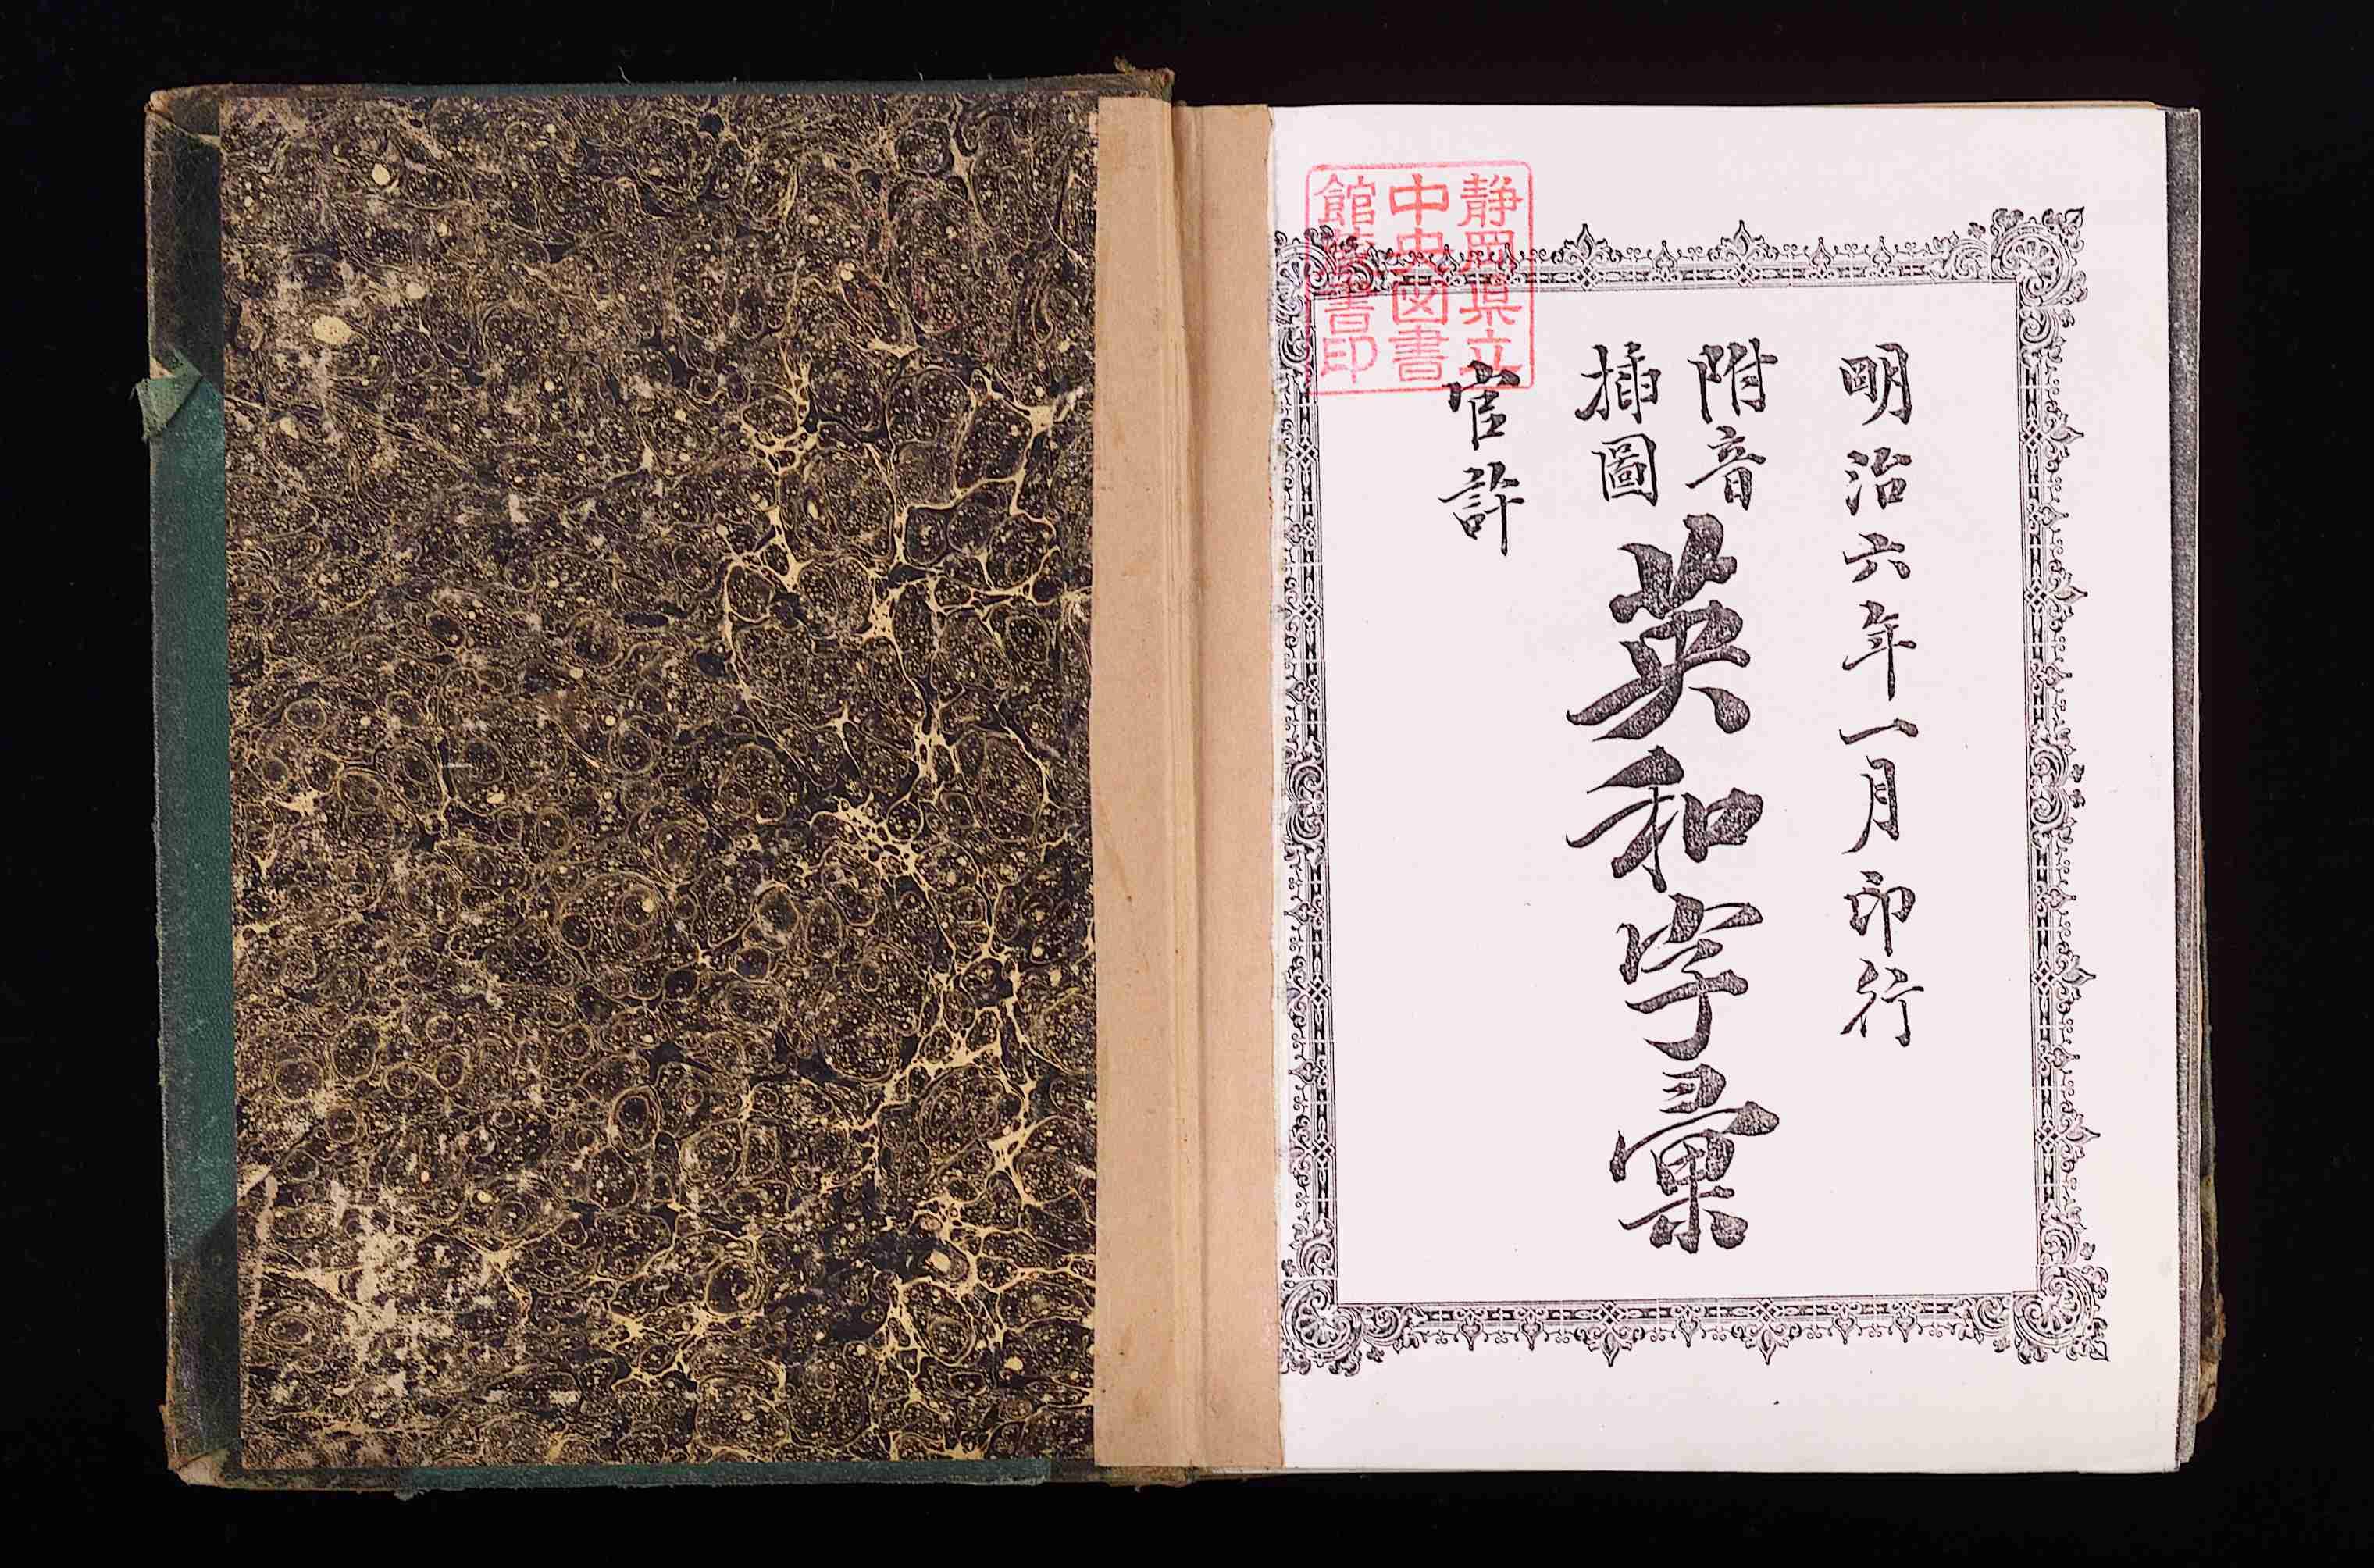 明治六年一月印行
附音
插圖
英和字彙
官許
静岡県立
中央図書
館蔵書印